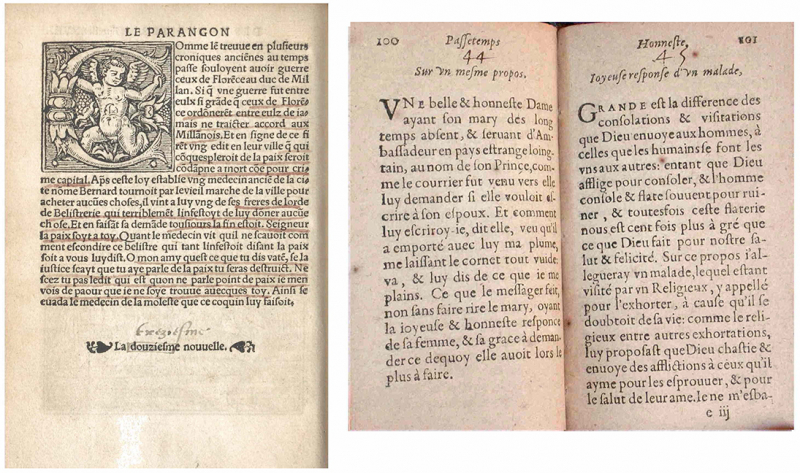 LE PARANGON
Omme lē treuue en plusieurs
croniques anciēnes au temps
passe souloyent auoir guerre
ceux de Florēce au duc de Mil
lan. Si q̄ vne guerre fut entre
eulx si grāde q̄ ceux de Florē-
ce ordōnerēt entre eulz de ia-
mais ne traicter accord aux
Millānois. Et en signe de ce fi
rēt vng edit en leur ville q̄ qui
cōques pleroit de la paix seroit
cōdāpne a mort cōe pour cri-
me capital. Aps ceste loy establie vng medecin anciē de la ci-
te nōme Bernard tournoit par le vieil marche de la ville pour
acheter aucūes choses, il vint a luy vng de ses freres de lorde
de Belistrerie qui terriblemēt linfestoyt de luy dōner aucūe
chose. Et en faisāt sa demāde tousiours la fin estoit. Seigneur
la paix soyt a toy. Quant le medecin vit quil ne scauoit com-
ment escondire ce belistre qui tant linfestoit disant la paix
soit a vous luy dist. O mon amy quest ce que tu dis vatē, se la
iustice sceayt que tu aye parle de la paix tu seras destruict. Ne
scez tu pas ledit qui est quon ne parle point de paix ie men
vois de paour que ie ne soye trouue auecques toy. Ainsi se
euada le medecin de la moleste que ce coquin luy faisoit,
treziesme
La douziesme nouuelle.
100 Passetemps
44
Sur vn mesme propos.
VNE belle & honneste Dame
ayant son mary dés long
temps absent, & seruant d'Am-
bassadeur en pays estrange loing-
tain, au nom de son Prince, com-
me le courrier fut venu vers elle
luy demander si elle vouloit es-
crire à son espoux. Et comment
luy escriroy-ie, dit elle, veu qu'il
a emporté auec luy ma plume,
me laissant le cornet tout vuide:
va, & luy dis de ce que ie me
plains. Ce que le messager feit,
non sans faire rire le mary, oyant
la ioyeuse & honneste responce
de sa femme, & sa grace à deman-
der ce dequoy elle auoit lors le
plus à faire.
Honneste, 101
45
Ioyeuse response d'vn malade,
GRANDE est la difference des
consolations & visitations
que Dieu enuoye aux hommes, à
celles que les humains se font les
vns aux autres: entant que Dieu
afflige pour consoler, & l'homme
console & flate souuent pour rui-
ner, & toutesfois ceste flaterie
nous est cent fois plus à gré que
ce que Dieu fait pour nostre sa-
lut & felicité. Sur ce propos i'al-
legueray vn malade, lequel estant
visité par vn Religieux, y appellé
pour l'exhorter, à cause qu'il se
doubtoit de sa vie: comme le reli-
gieux entre autres exhortations,
luy proposast que Dieu chastie &
enuoye des afflictions à ceux qu'il
ayme pour les esprouuer, & pour
le salut de leur ame. Ie ne m'esba-
c iij